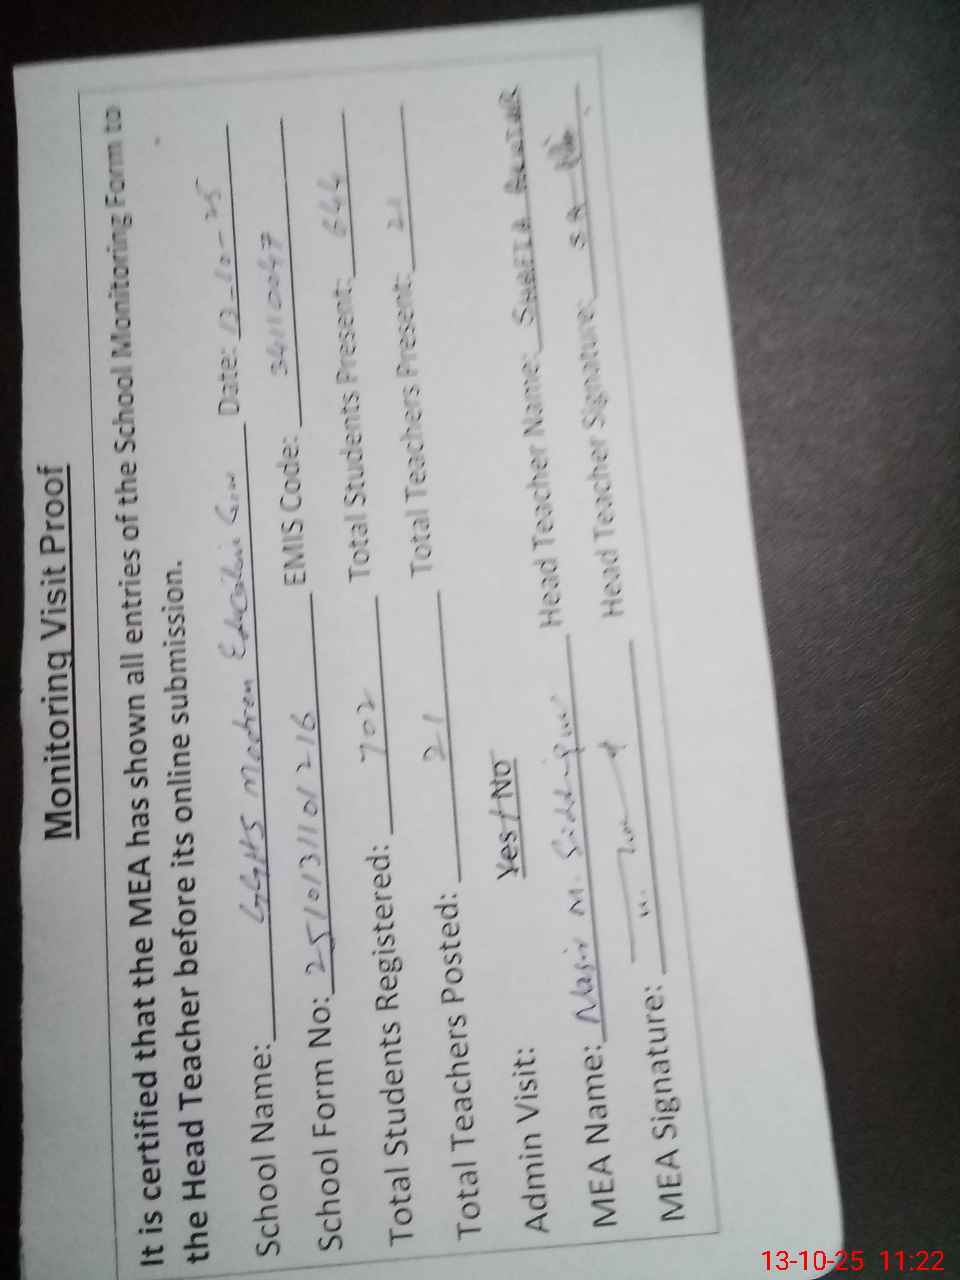 Monitoring Visit Proof
It is certified that the MEA has shown all entries of the School Monitoring Form to
the Head Teacher before its online submission.
School Name: GGHS Modren Date: 13-10-25
School Form No: 25101311101216 EMIS Code: 34110047
Total Students Registered: 702 Total Students Present: 644
Total Teachers Posted: 21 Total Teachers Present: 21
Admin Visit: Yes / No
MEA Name: Nasir M. Head Teacher Name:
MEA Signature: Head Teacher Signature:
13-10-25 11:22